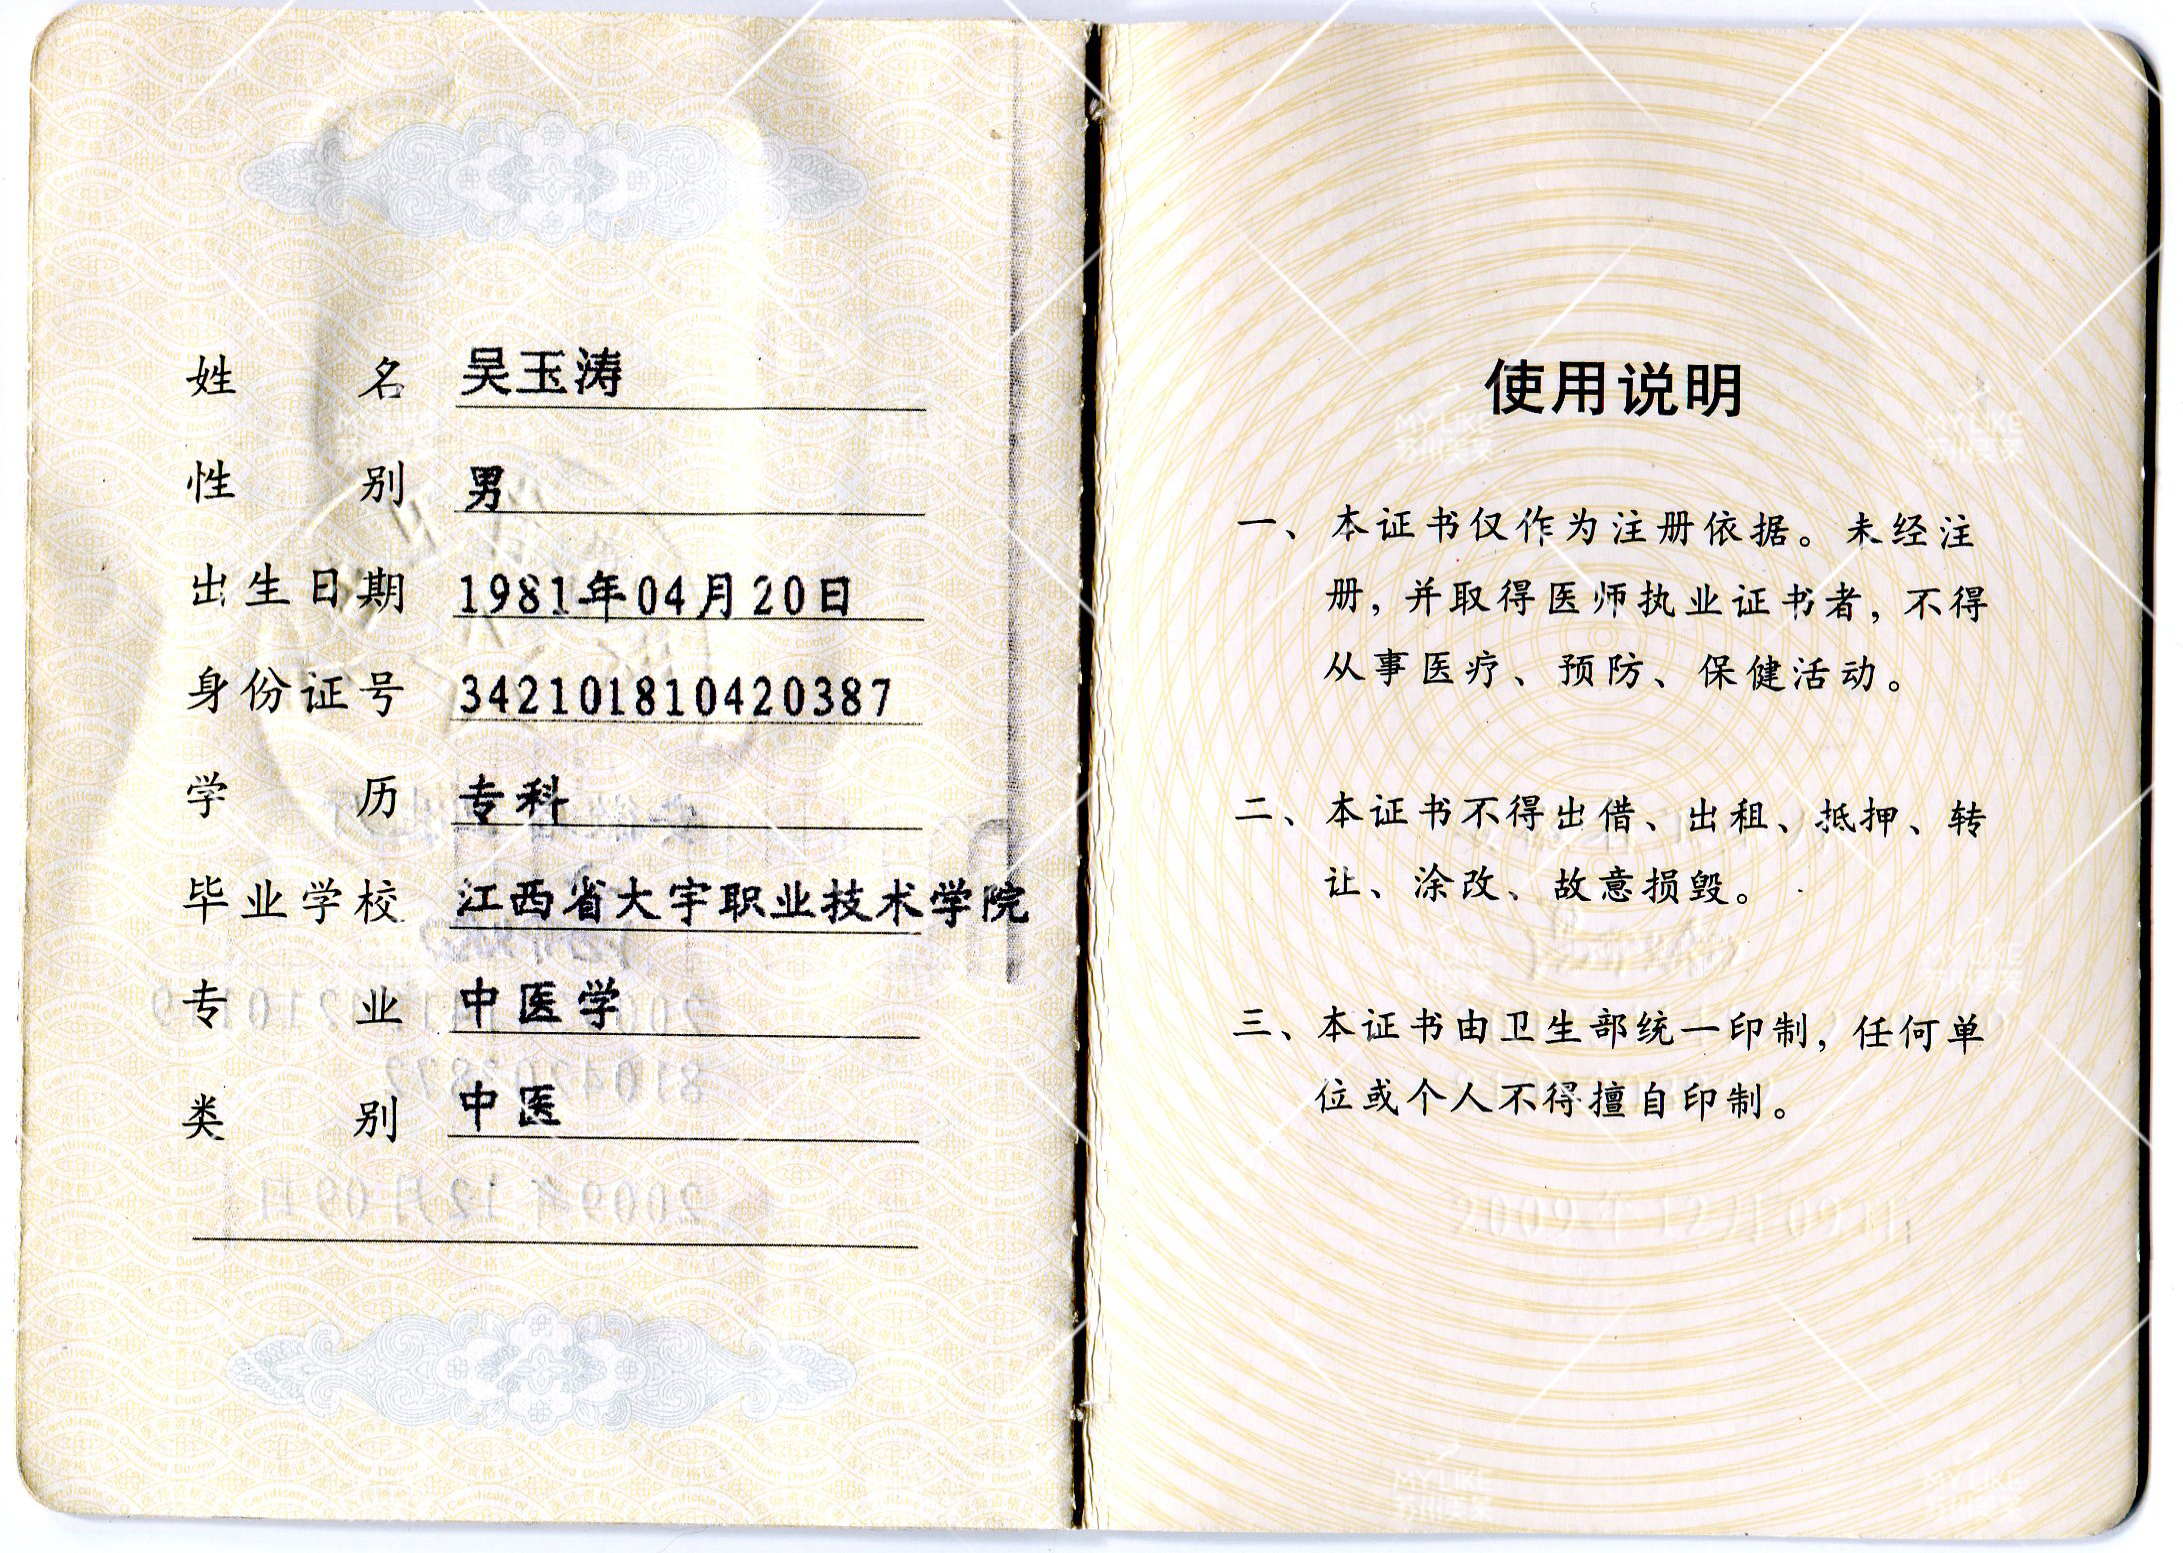 姓名 吴玉涛
性别 男
出生日期 1981年04月20日
身份证号 342101810420387
学历 专科
毕业学校 江西省大宇职业技术学院
专业 中医学
类别 中医
使用说明
一、本证书仅作为注册依据。未经注
册,并取得医师执业证书者,不得
从事医疗、预防、保健活动。
二、本证书不得出借、出租、抵押、转
让、涂改、故意损毁。
三、本证书由卫生部统一印制,任何单
位或个人不得擅自印制。
2009年12月09日
MYLIKE
苏州美莱